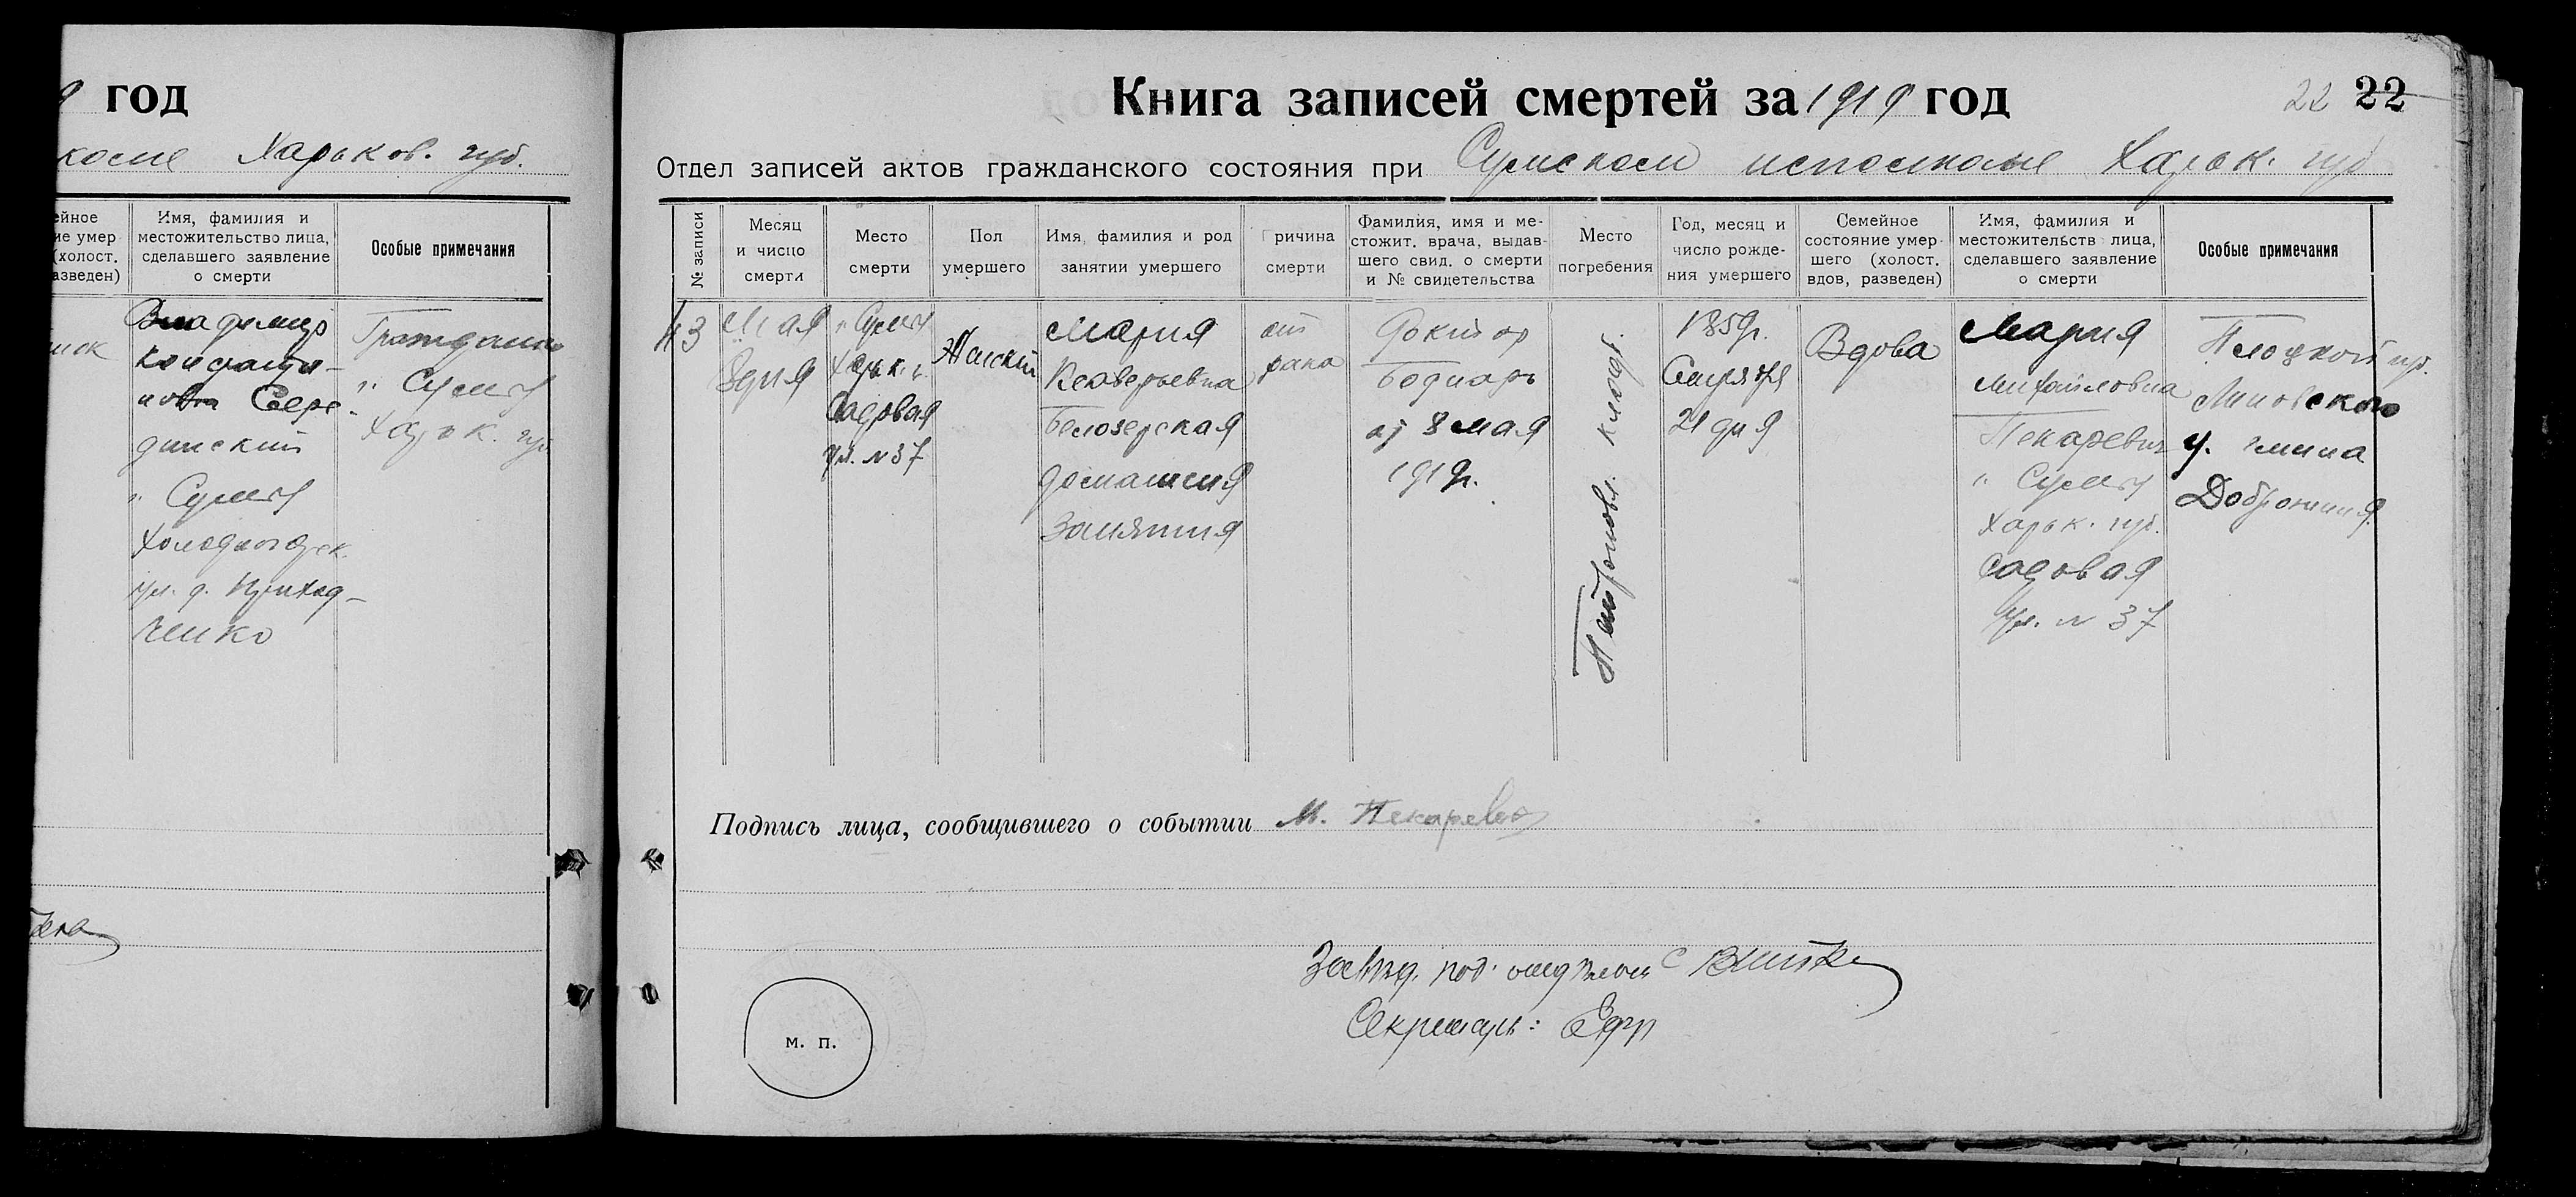 год
Харьков. губ.
Имя, фамилия и
местожительство лица,
сделавшего заявление
о смерти
Особые примечания
Владимир
Константи-
нович Сере-
динский
г. Сумы
Холодногорск.
ул. д. Приход-
ченко
Гражданин
г. Сумы
Харьк. губ.
Книга записей смертей за 1919 год
22 22
Отдел записей актов гражданского состояния при Сумском исполкоме Харьк. губ
№ записи
Месяц
и чисцо
смерти
Место
смерти
Пол
умершего
Имя, фамилия и род
занятии умершего
Причина
смерти
Фамилия, имя и ме-
стожит. врача, выдав-
шего свид. о смерти
и № свидетельства
Место
погребения
Год, месяц и
число рожде-
ния умершего
Семейное
состояние умер-
шего (холост.
вдов, разведен)
Имя, фамилия и
местожительств лица,
сделавшего заявление
о смерти
Особые примечания
43
Мая
8 дня
г. Сумы
Харьк. г.
Садовая
ул. № 37
Женский
Мария
Ксаверьевна
Белозерская
домашния
занятия
от
рака
Доктор
Боднарь
от 8 мая
1919г.
Петроповл. кладб.
1859г.
Сентября
21 дня
Вдова
Мария
Михайловна
Пекаревич
г. Сумы
Харьк. губ.
Садовая
ул. № 37
Плоцкой губ.
Липовского
у. гмина
Добржиния
Подпись лица, сообщившего о событии М. Пекаревич
Завед. под. отделом
Секретарь:
м. п.